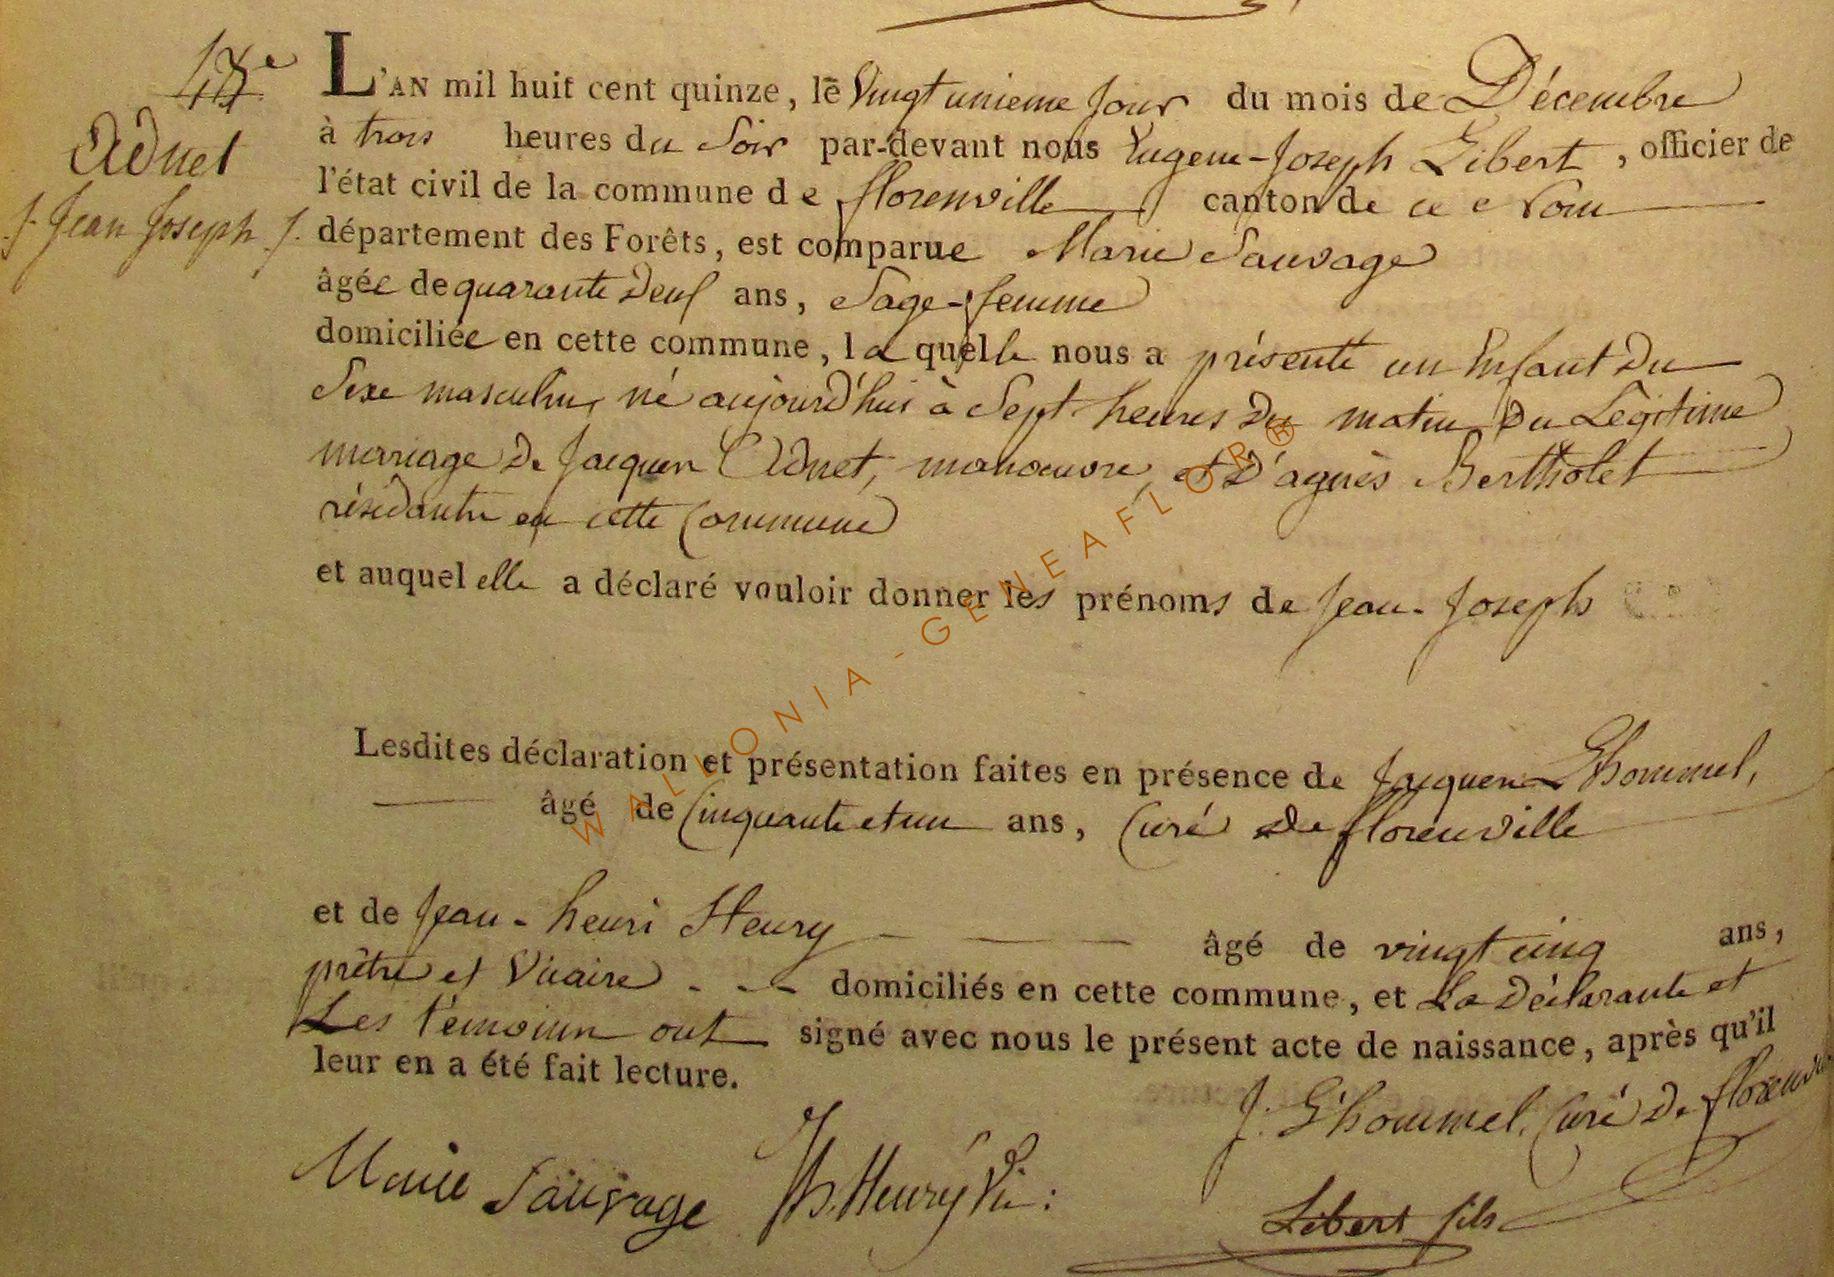 47e
Adnet
J. Jean Joseph J.
L'AN mil huit cent quinze, le Vingt unieme Jour du mois de Décembre
à trois heures du Soir par-devant nous Eugene-Joseph Libert, officier de
l'état civil de la commune de florenville canton de ce Nom
département des Forêts, est comparue Marie Sauvage
âgée de quarante deux ans, Sage-femme
domiciliée en cette commune, laquelle nous a présenté un Enfant Du
Sexe masculin, né aujourd'hui à Sept heures du matin Du Légitime
mariage de Jacques Adnet, manoeuvre, et D'agnès Bertholet
résidants en cette Commune
et auquel elle a déclaré vouloir donner les prénoms de Jean-Joseph
Lesdites déclaration et présentation faites en présence de Jacques Lhommel,
âgé de Cinquante et un ans, Curé de florenville
et de Jean-henri Henry âgé de vingt cinq ans,
prêtre et Vicaire domiciliés en cette commune, et La Déclarante et
Les témoins ont signé avec nous le présent acte de naissance, après qu'il
leur en a été fait lecture.
J. Lhommel, Curé de florenville
Marie Sauvage Jh. Henry Vic:
Libert fils
WALLONIA-GENEAFLOR®